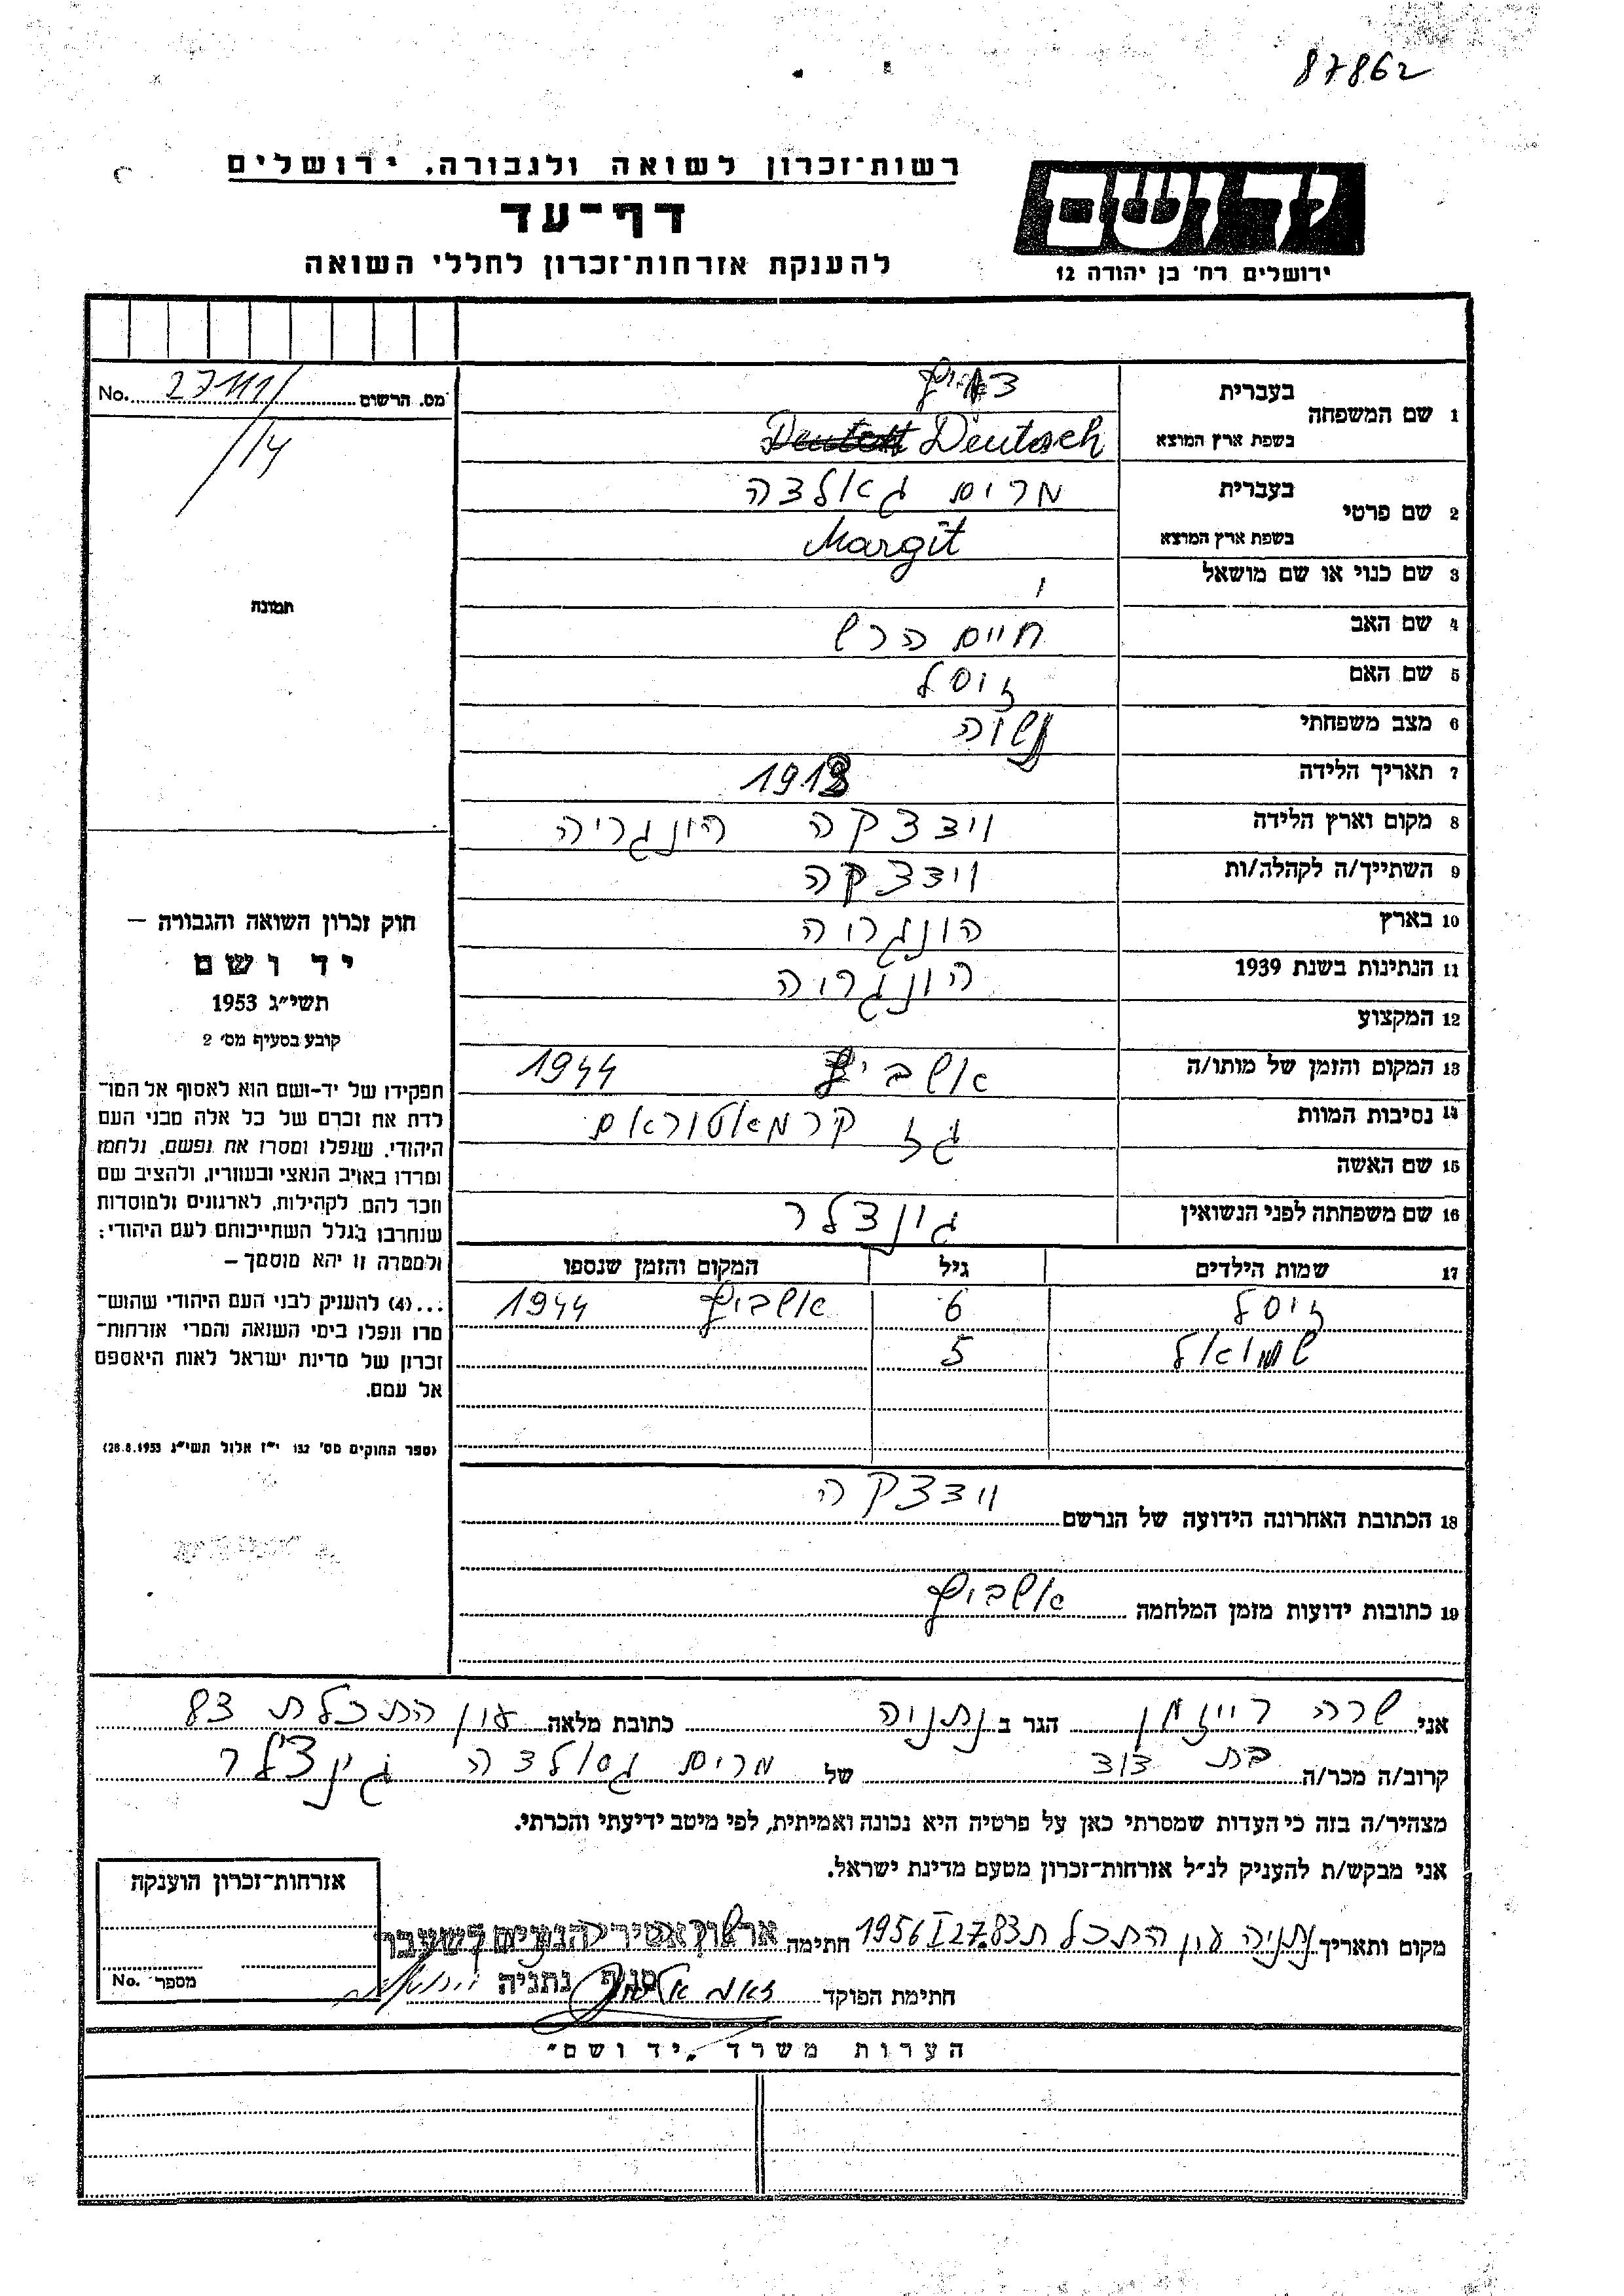 87862
רשות־זכרון לשואה ולגבורה, ירושלים
דף־עד
להענקת אזרחות־זכרון לחללי השואה
יד ושם
ירושלים רח׳ בן יהודה 12
מס. הרשום 27111/ No.
/14
תמונה
1 שם המשפחה
בעברית
בשפת ארץ המוצא Deutsch
2 שם פרטי
בעברית מרים גאלדה
בשפת ארץ המוצא Margit
3 שם כנוי או שם מושאל
4 שם האב חיים הרש
5 שם האם זיסל
6 מצב משפחתי נשוה
7 תאריך הלידה
8 מקום וארץ הלידה וידצקה הונגריה
9 השתייך/ה לקהלה/ות וידצקה
10 בארץ הונגריה
11 הנתינות בשנת 1939 הונגריה
12 המקצוע
13 המקום והזמן של מותו/ה אושביץ 1944
14 נסיבות המוות גז קרמאטוראום
15 שם האשה
16 שם משפחתה לפני הנשואין גינצלר
17 שמות הילדים גיל המקום והזמן שנספו
זיסל 6 אושביץ 1944
שמואל 5
18 הכתובת האחרונה הידועה של הנרשם וידצקה
19 כתובות ידועות מזמן המלחמה אושביץ
חוק זכרון השואה והגבורה —
יד ושם
תשי״ג 1953
קובע בסעיף מס׳ 2
תפקידו של יד־ושם הוא לאסוף אל המו־
לדת את זכרם של כל אלה מבני העם
היהודי, שנפלו ומסרו את נפשם, נלחמו
ומרדו באויב הנאצי ובעוזריו, ולהציב שם
וזכר להם, לקהילות, לארגונים ולמוסדות
שנחרבו בגלל השתייכותם לעם היהודי;
ולמטרה זו יהא מוסמך —
...(4) להעניק לבני העם היהודי שהוש־
מדו ונפלו בימי השואה והמרי אזרחות־
זכרון של מדינת ישראל לאות היאספם
אל עמם.
(ספר החוקים מס׳ 132 י״ז אלול תשי״ג 28.8.1953)
אני שרה רייזמן הגר ב נתניה כתובת מלאה עין התכלת 83
קרוב/ה מכר/ה בת דוד של מרים גאולדה גינצלר
מצהיר/ה בזה כי העדות שמסרתי כאן על פרטיה היא נכונה ואמיתית, לפי מיטב ידיעתי והכרתי.
אני מבקש/ת להעניק לנ״ל אזרחות־זכרון מטעם מדינת ישראל.
מקום ותאריך נתניה עין התכלת 83 27.I 1956 חתימה
ארגון אסירי הנאצים לשעבר
סניף נתניה
חתימת הפוקד
אזרחות־זכרון הוענקה
מספר No.
הערות משרד „יד ושם״